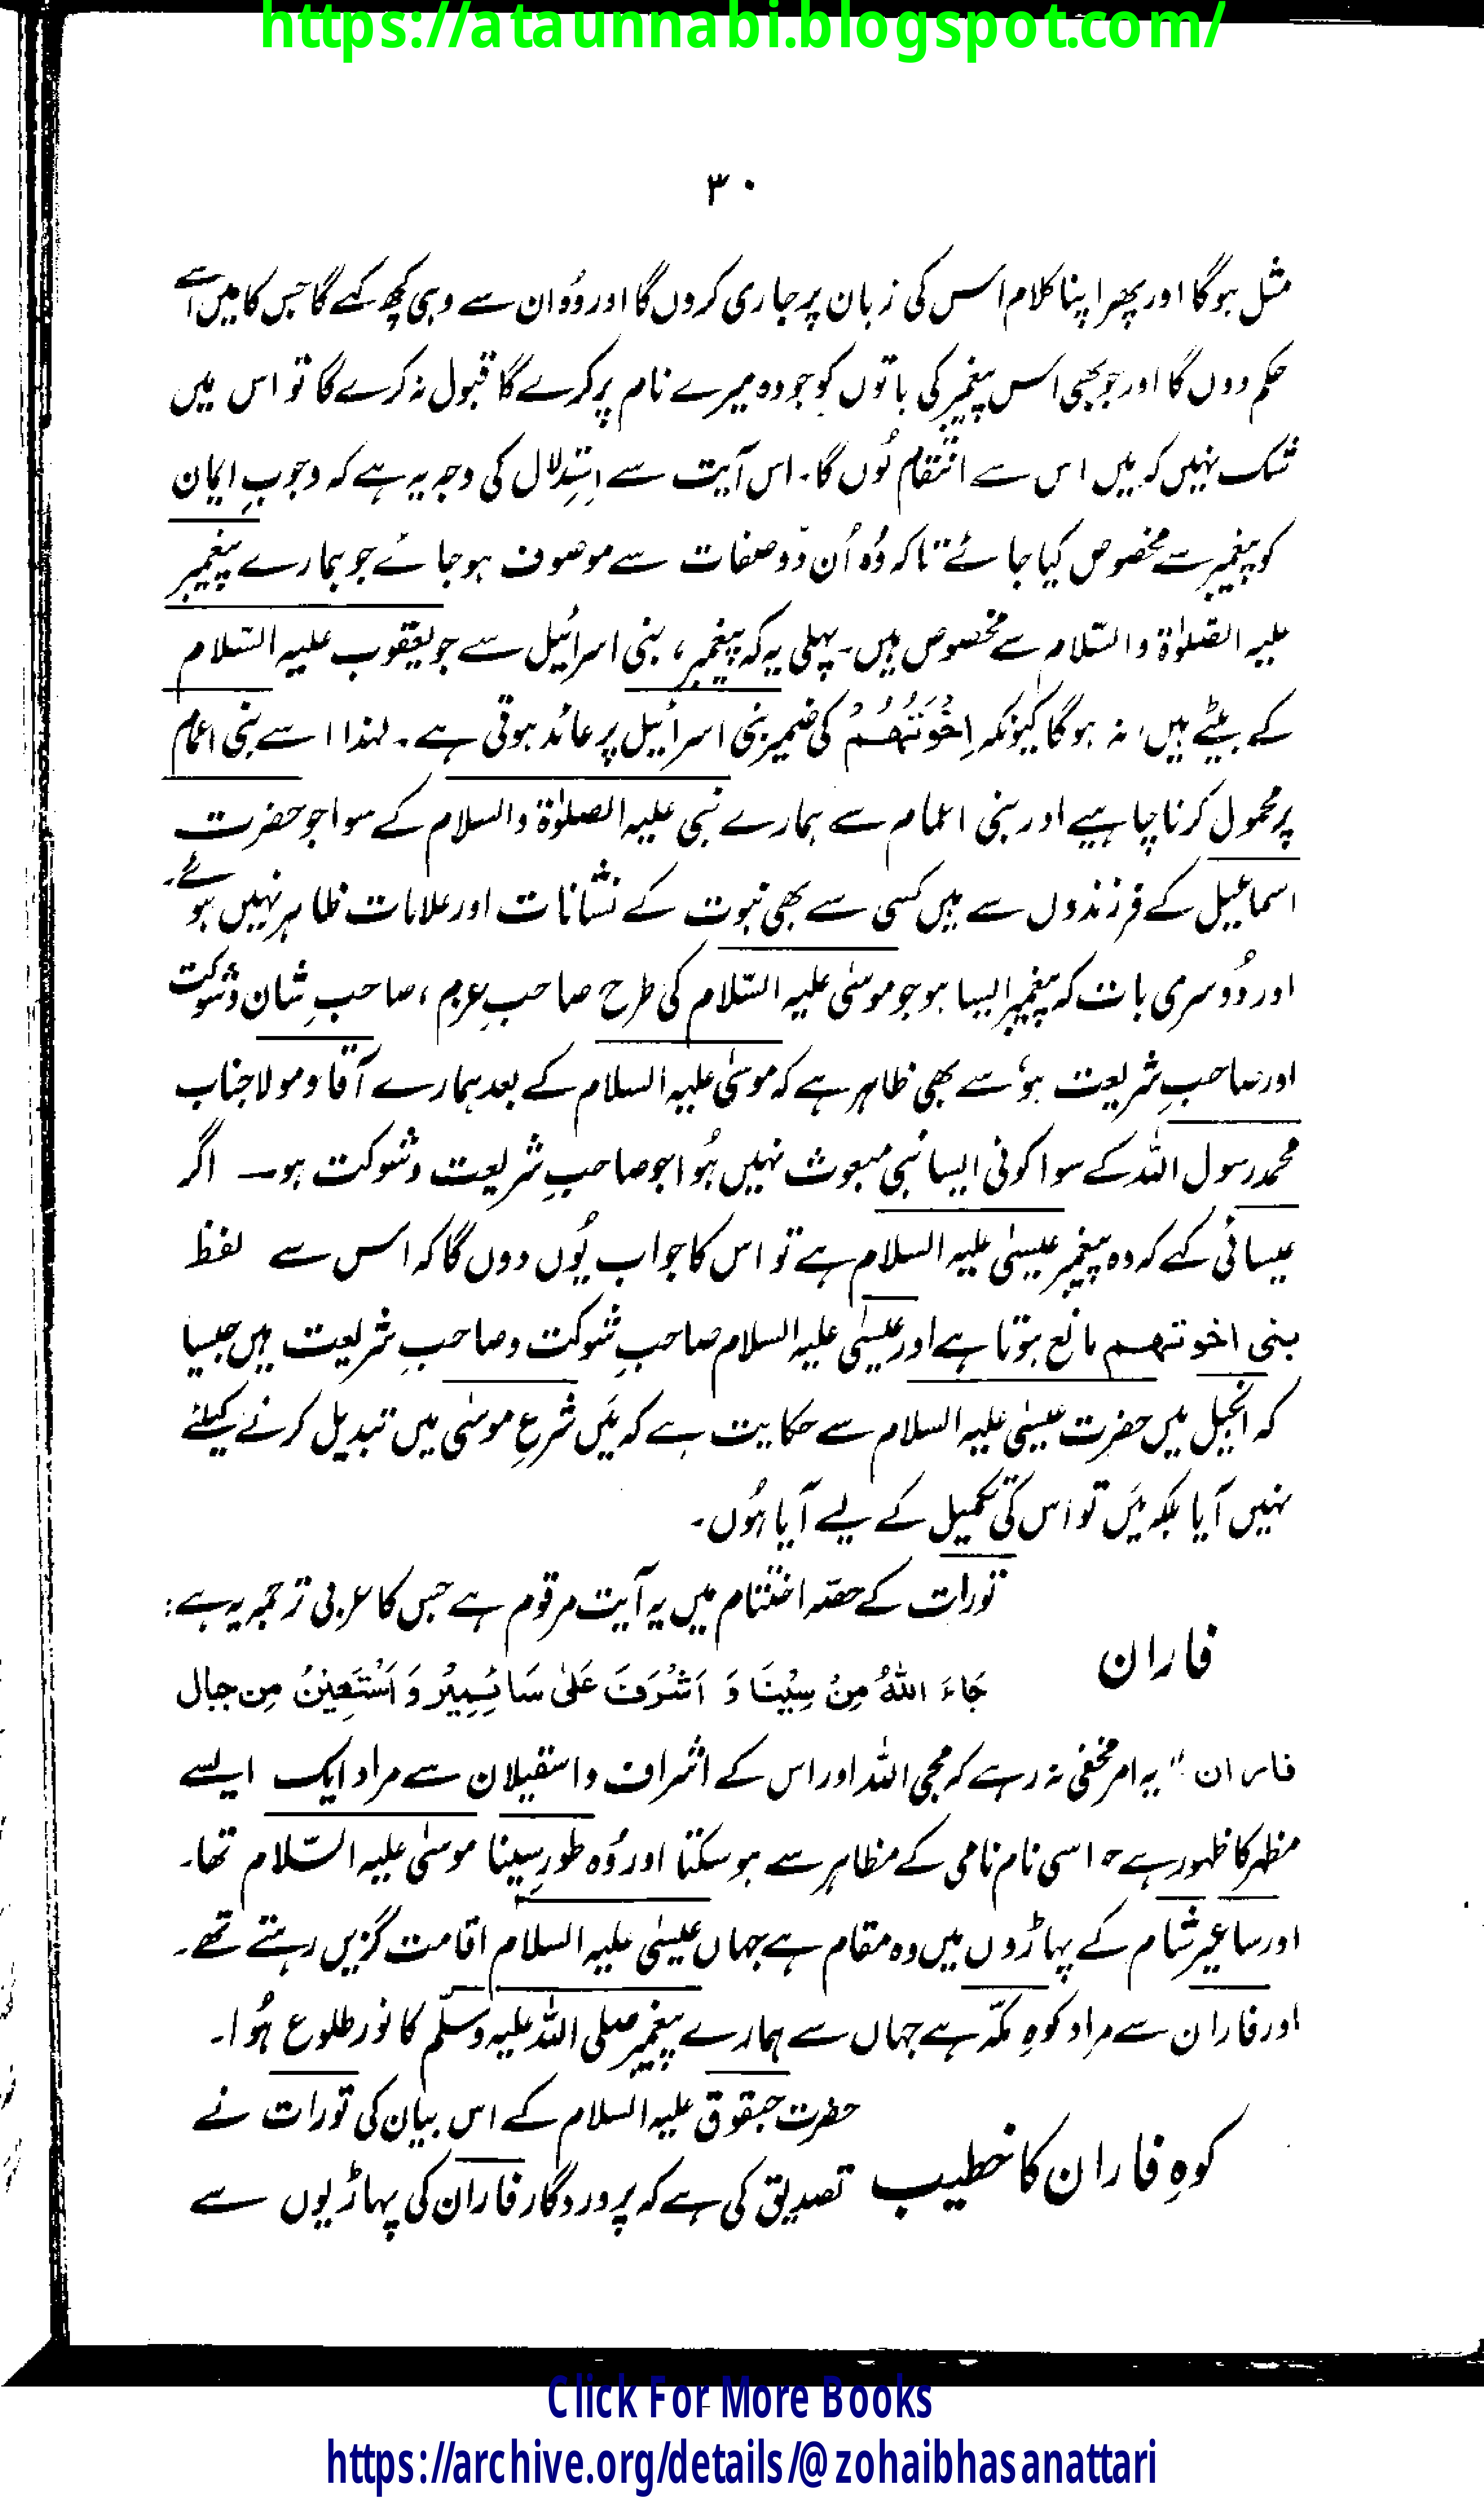 https://ataunnabi.blogspot.com/
۳۰
مثل ہوگا اور پھر اپنا کلام اس کی زبان پر جاری کروں گا اور وُہ ان سے وہی کچھ کہے گا جس کا میں اسے
حکم دوں گا اور جو بھی اس پیغمبر کی باتوں کو جو وہ میرے نام پر کرے گا قبول نہ کرے گا تو اس میں
شک نہیں کہ میں اس سے انتقام لُوں گا۔ اس آیت سے استدلال کی وجہ یہ ہے کہ وجوبِ ایمان
کو پیغمبر سے مخصوص کیا جائے تاکہ وُہ اُن دو صفات سے موصوف ہو جائے جو ہمارے پیغمبر
علیہ الصلوٰۃ والسّلام سے مخصوص ہیں۔ پہلی یہ کہ پیغمبر، بنی اسرائیل سے جو یعقوب علیہ السّلام
کے بیٹے ہیں، نہ ہو گا کیونکہ اِخْوَتَہُمْ کی ضمیر بنی اسرائیل پر عائد ہوتی ہے۔ لہٰذا اسے بنی اعمام
پر محمول کرنا چاہیے اور بنی اعمام سے ہمارے نبی علیہ الصلوٰۃ والسلام کے سوا جو حضرت
اسماعیل کے فرزندوں سے ہیں کسی سے بھی نبوت کے نشانات اور علامات ظاہر نہیں ہوئے۔
اور دُوسری بات کہ پیغمبر ایسا ہو جو موسٰی علیہ السّلام کی طرح صاحبِ عزم، صاحبِ شان و شوکت
اور صاحبِ شریعت ہو، سے بھی ظاہر ہے کہ موسٰی علیہ السلام کے بعد ہمارے آقا و مولا جناب
محمد رسول اللہ کے سوا کوئی ایسا نبی مبعوث نہیں ہُوا جو صاحبِ شریعت و شوکت ہو۔ اگر
عیسائی کہے کہ وہ پیغمبر عیسٰی علیہ السلام ہے تو اس کا جواب یُوں دوں گا کہ اس سے لفظ
بنی اخوتہم مانع ہوتا ہے اور عیسٰی علیہ السلام صاحبِ شوکت و صاحبِ شریعت ہیں جیسا
کہ انجیل میں حضرت عیسٰی علیہ السلام سے حکایت ہے کہ میَں شرعِ موسٰی میں تبدیل کرنے کیلئے
نہیں آیا بلکہ میَں تو اس کی تکمیل کے لیے آیا ہُوں۔
فاران
تورات کے حصّہ اختتام میں یہ آیت مرقوم ہے جس کا عربی ترجمہ یہ ہے:
جَاءَ اللهُ مِنْ سِيْنَا وَ اَشْرَفَ عَلٰی سَائِيِيْر وَ اَسْتَعِيْنُ مِن جبال
فاران "۔ یہ امر مخفی نہ رہے کہ مجی اللہ اور اس کے اشراف و استیلان سے مراد ایک ایسے
مظہر کا ظہور ہے جو اسی نام نامی کے مظاہر سے ہو سکتا اور وُہ طورِ سینا موسٰی علیہ السّلام تھا۔
اور ساعیر شام کے پہاڑوں میں وہ مقام ہے جہاں عیسٰی علیہ السلام اقامت گزیں رہتے تھے۔
اور فاران سے مراد کوہِ مکّہ ہے جہاں سے ہمارے پیغمبر صلی اللہ علیہ وسلّم کا نور طلوع ہُوا۔
کوہِ فاران کا خطیب
حضرت حبقوق علیہ السلام کے اس بیان کی تورات نے
تصدیق کی ہے کہ پروردگار فاران کی پہاڑیوں سے
Click For More Books
https://archive.org/details/@zohaibhasanattari